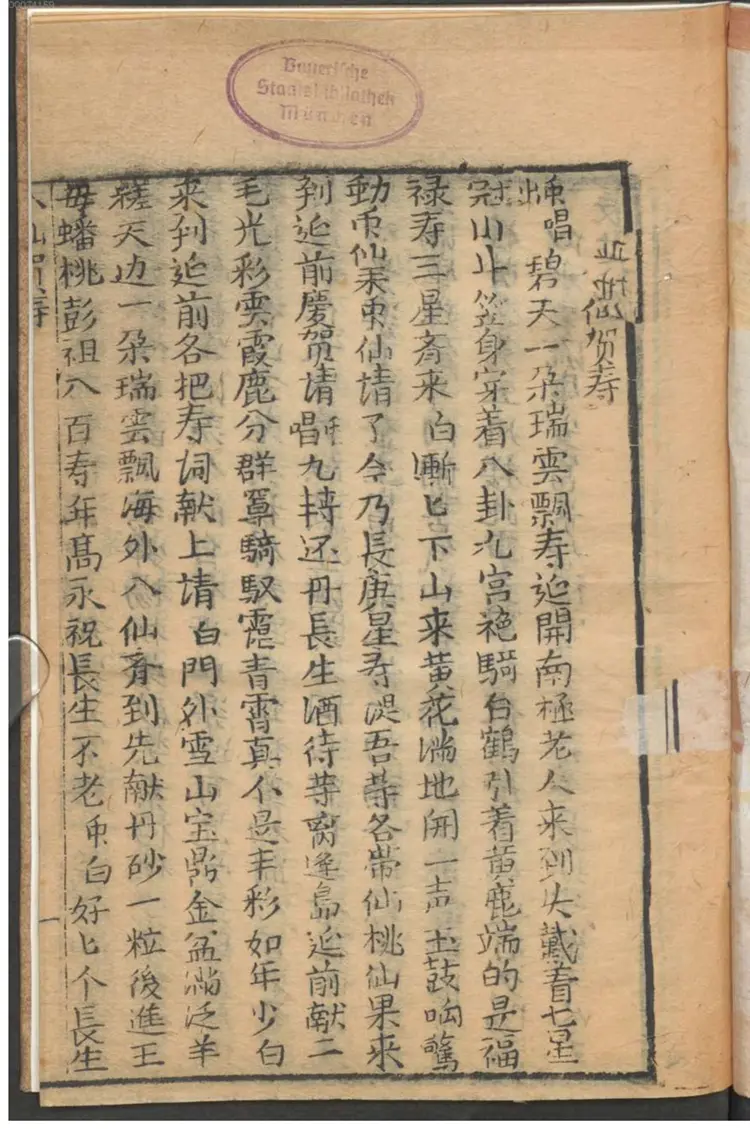 00074159
Bayerische
Staatsbibliothek
München
仙贺寿
唱 碧天一朶瑞雲飄寿延開南極老人来到头戴着七星
冠山斗笠身穿着八卦九宫袍騎白鶴引着黄鹿端的是福
禄寿三星斉来 白 漸匕下山来黄花满地開一声玉鼓响驚
動 仙来 仙請了今乃長庚星寿 吾等各带仙桃仙果来
到延前慶贺請 唱 九轉还丹長生酒待等离蓬島延前献二
毛光彩雲霞鹿分群 騎馭 青霄真个是丰彩如年少白
来到延前各把寿词献上請 白 門外雪山宝鼎金盆满泛羊
天边一朶瑞雲飄海外八仙斉到先献丹砂一粒後進王
母蟠桃彭祖八百寿年髙永祝長生不老 白 好匕个長生
八仙贺寿